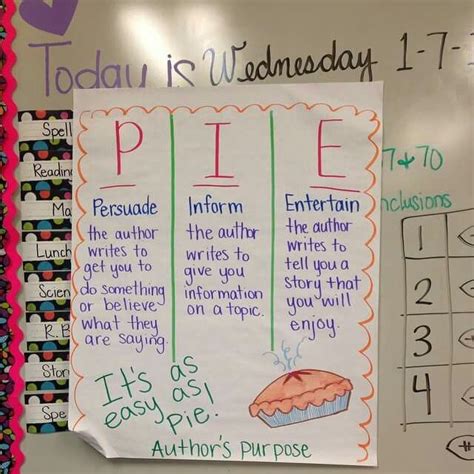 Today is Wednesday 1-7-1
P I E
Persuade
the author
writes to
get you to
do something
or believe
what they
are saying.
Inform
the author
writes to
give you
information
on a topic.
Entertain
the author
writes to
tell you a
story that
you will
enjoy.
It's as
easy as
pie.
Author's Purpose
Spell
Reading
Ma
Lunch
Scien
R.B
Stor
Spe
7 & 70
nclusions
1
2
3
4